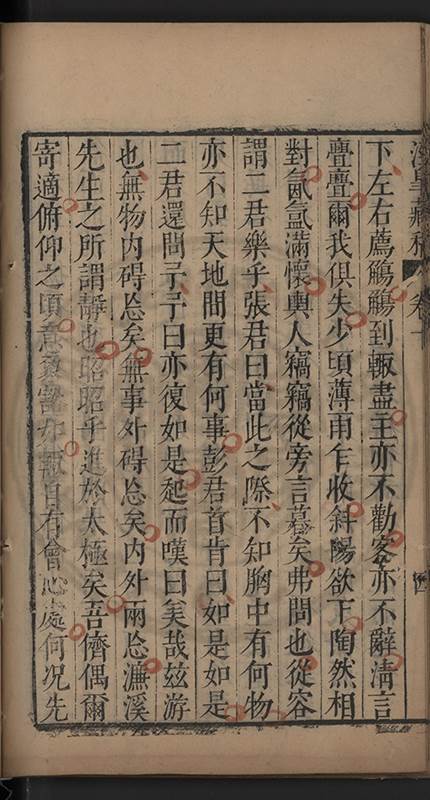 涇皐藏稿 卷十 四
下左右薦觴觴到輒盡主亦不勸客亦不辭清言
亹亹爾我俱失少頃薄雨乍收斜陽欲下陶然相
對氤氳滿懷輿人竊竊從旁言暮矣弗問也從容
謂二君樂乎張君曰當此之際不知胸中有何物
亦不知天地間更有何事彭君首肯曰如是如是
二君還問予予曰亦復如是起而嘆曰美哉茲游
也無物內碍忘矣無事外碍忘矣內外兩忘濂溪
先生之所謂靜也昭昭乎進於太極矣吾儕偶爾
寄適俯仰之頃意象豁然輒自有會心處何況先